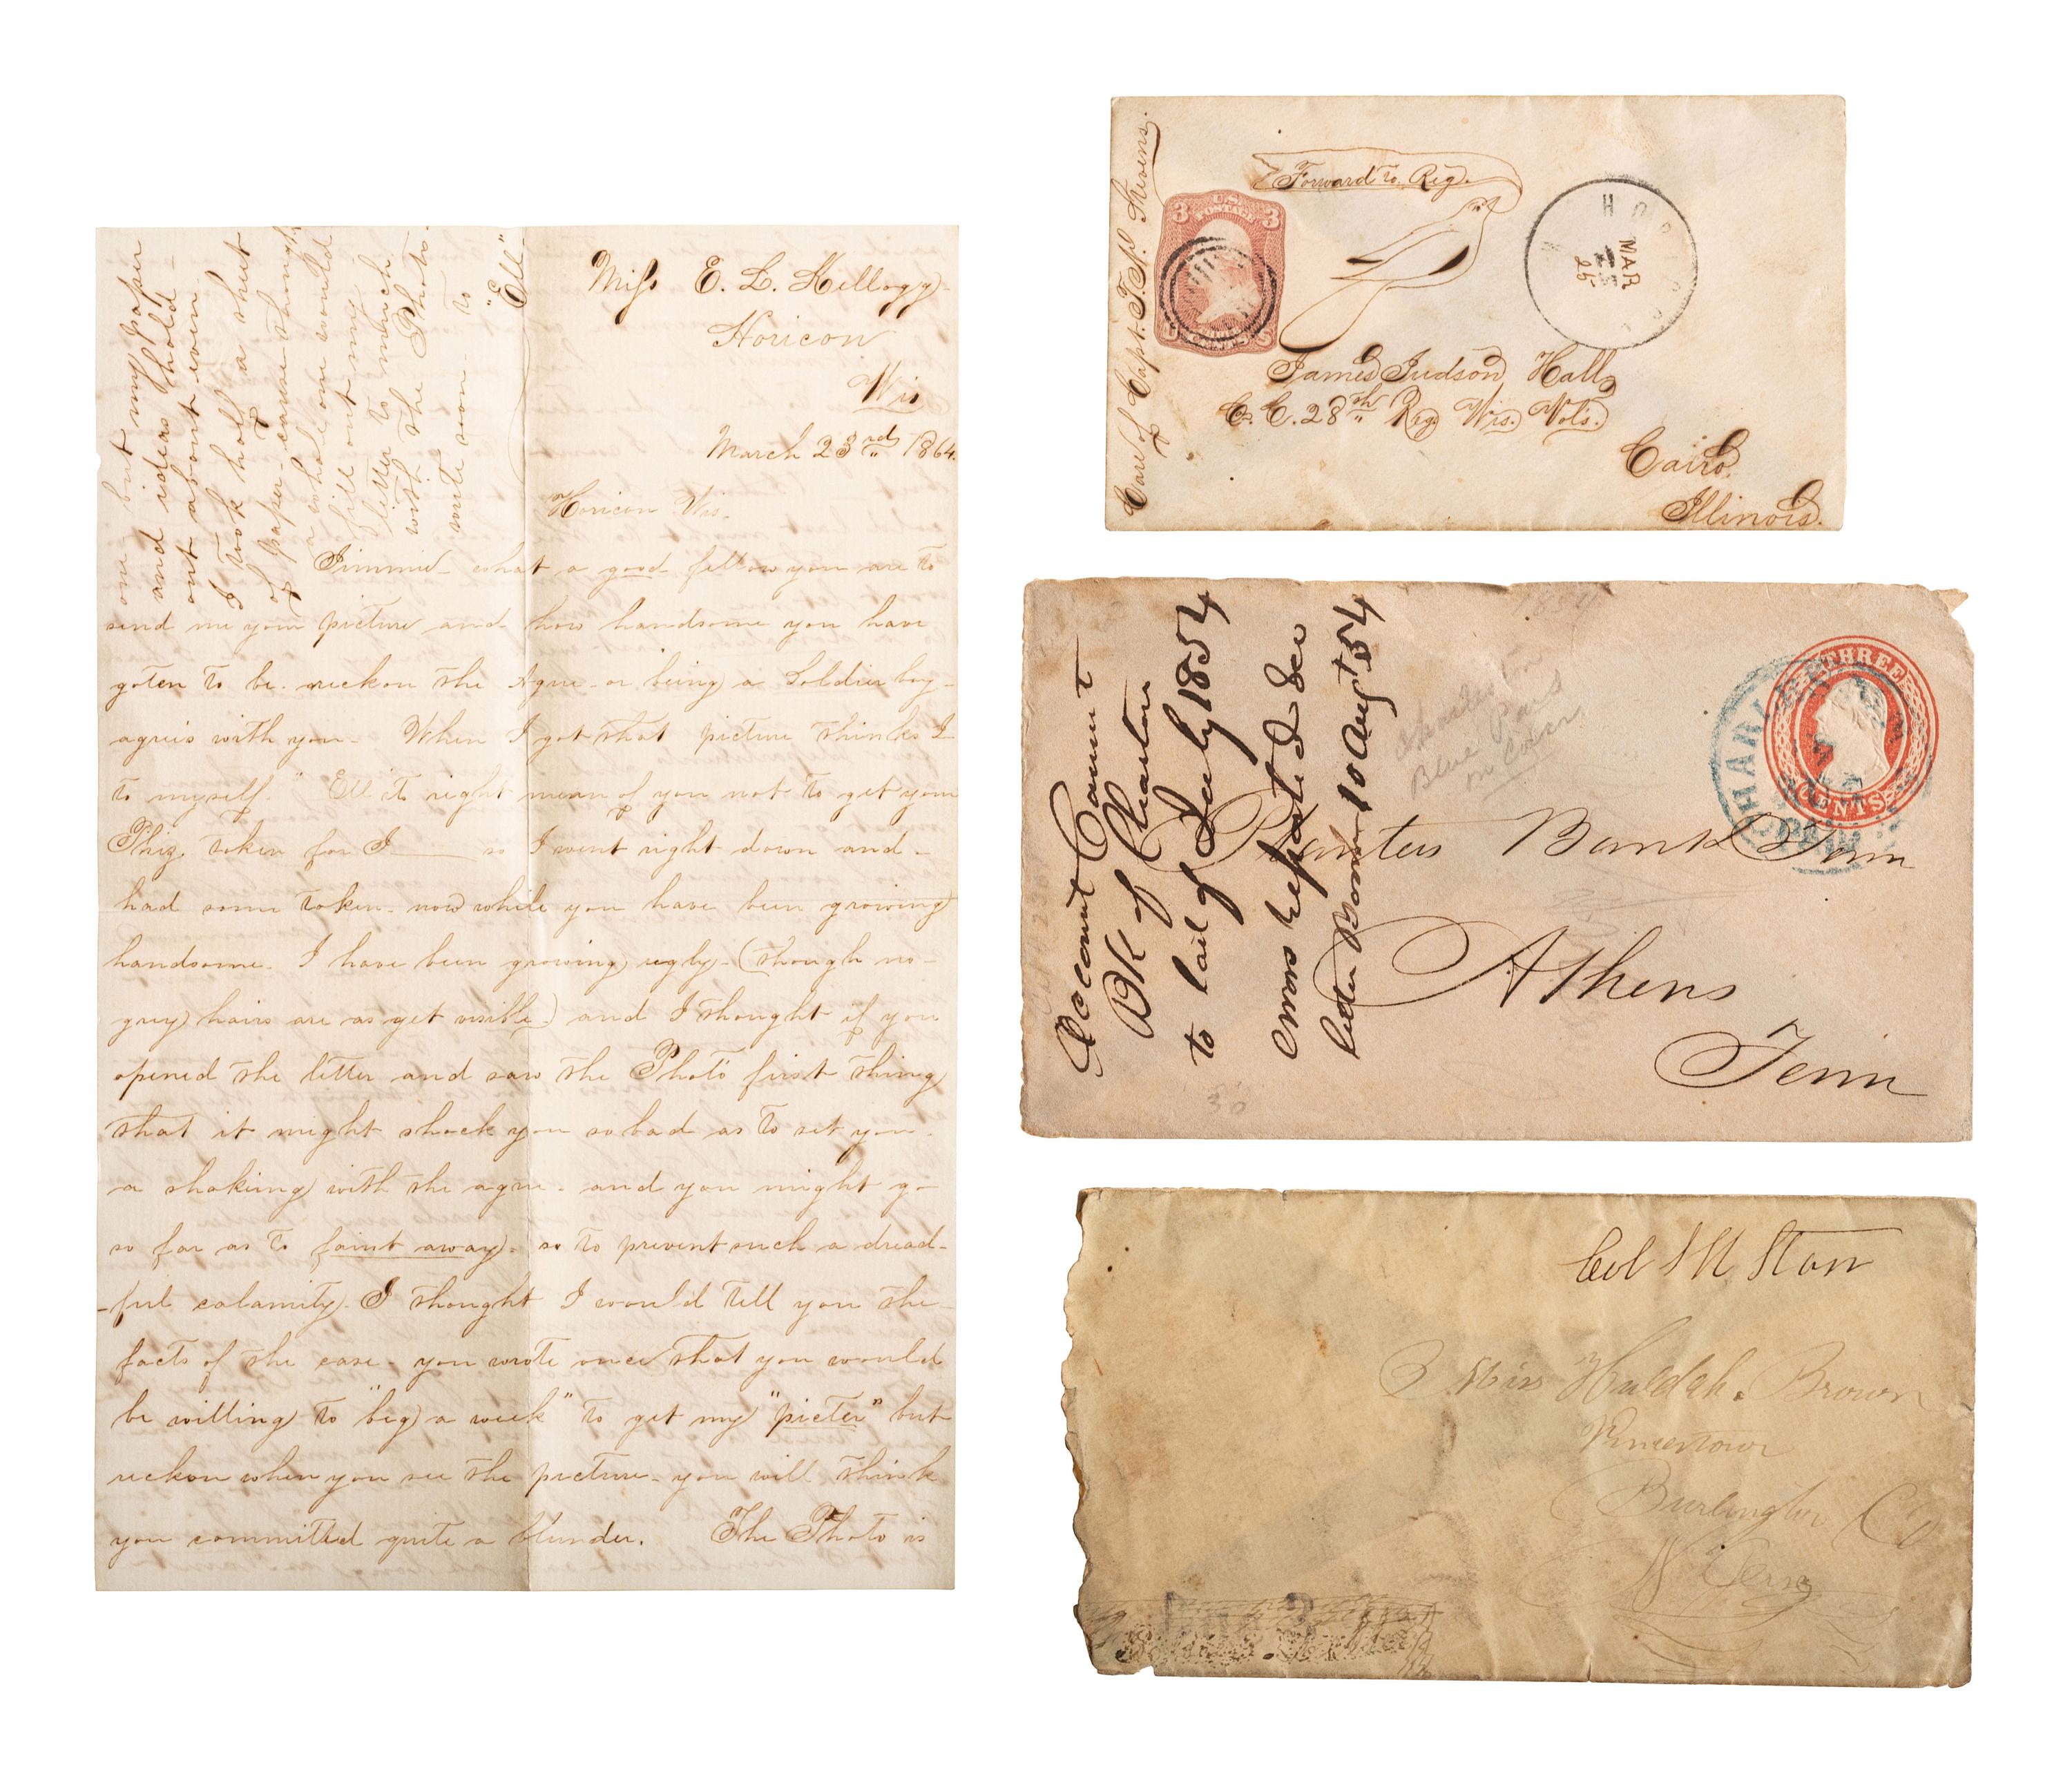 Miss E. L. Kellogg
Horicon
Wis
March 23rd 1864.
Horicon Wis.
Jimmie - what a good fellow you are to
send me your picture and how handsome you have
goten to be. reckon the Ague - or being a Soldier boy -
agrees with you - When I got that picture thinks I
to myself. " Ell it right mean of you not to get your
Phiz. taken for J so I went right down and -
had some taken - now while you have been growing
handsome. I have been growing ugly - (though no -
grey hairs are as yet visible) and I thought if you
opened the letter and saw the Photo first thing
that it might shock you so bad as to set you
a shaking with the ague - and you might go
so far as to faint away - so to prevent such a dread-
-ful calamity - I thought I would tell you the
facts of the case - you wrote once that you would
be willing to "beg a week" to get my "picter" but
reckon when you see the picture - you will think
you committed quite a blunder. The Photo is
one - but my paper
and ideas hold
out about even
I took half a sheet
of paper - cause though
a whole one would
fill out my
letter to much
with the Photo -
write soon - to
"Ell"
Care of Capt. T.S. Stevens.
Forward to Reg.
3 U.S. POSTAGE 3
HORICON
MAR
25
James Judson Hall,
Co. C. 28th Reg Wis. Vols.
Cairo.
Illinois.
Account Currant
BK of Charleston
to last of July 1854
errors reported See
letter Book 10 Aug't 54
1854
Charleston
Blue Paid
on Cover
THREE
CENTS
CHARLESTON
Planters Bank Tenn
Athens
Tenn
30
Col S H Starr
Miss Huldah. Brown
Vincentown
Burlington Co
N Jersey
Due 3